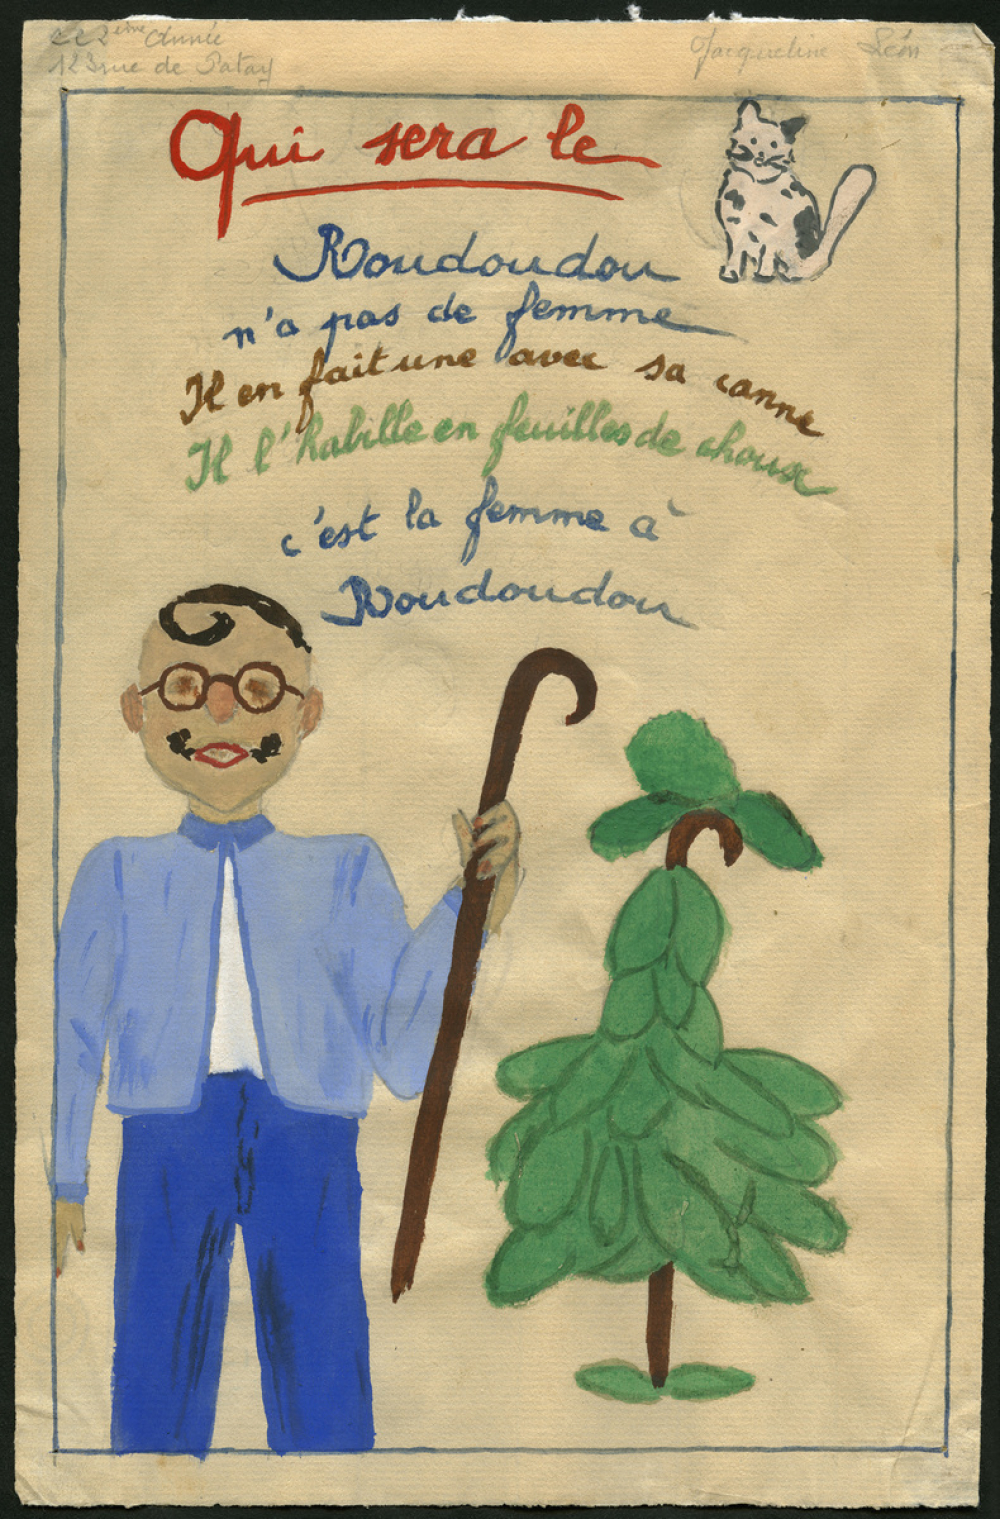 2ème Année
123 rue de Patay
Jacqueline Léon
Qui sera le
Roudoudou
n'a pas de femme
Il en fait une avec sa canne
Il l'habille en feuilles de choux
c'est la femme à
Roudoudou